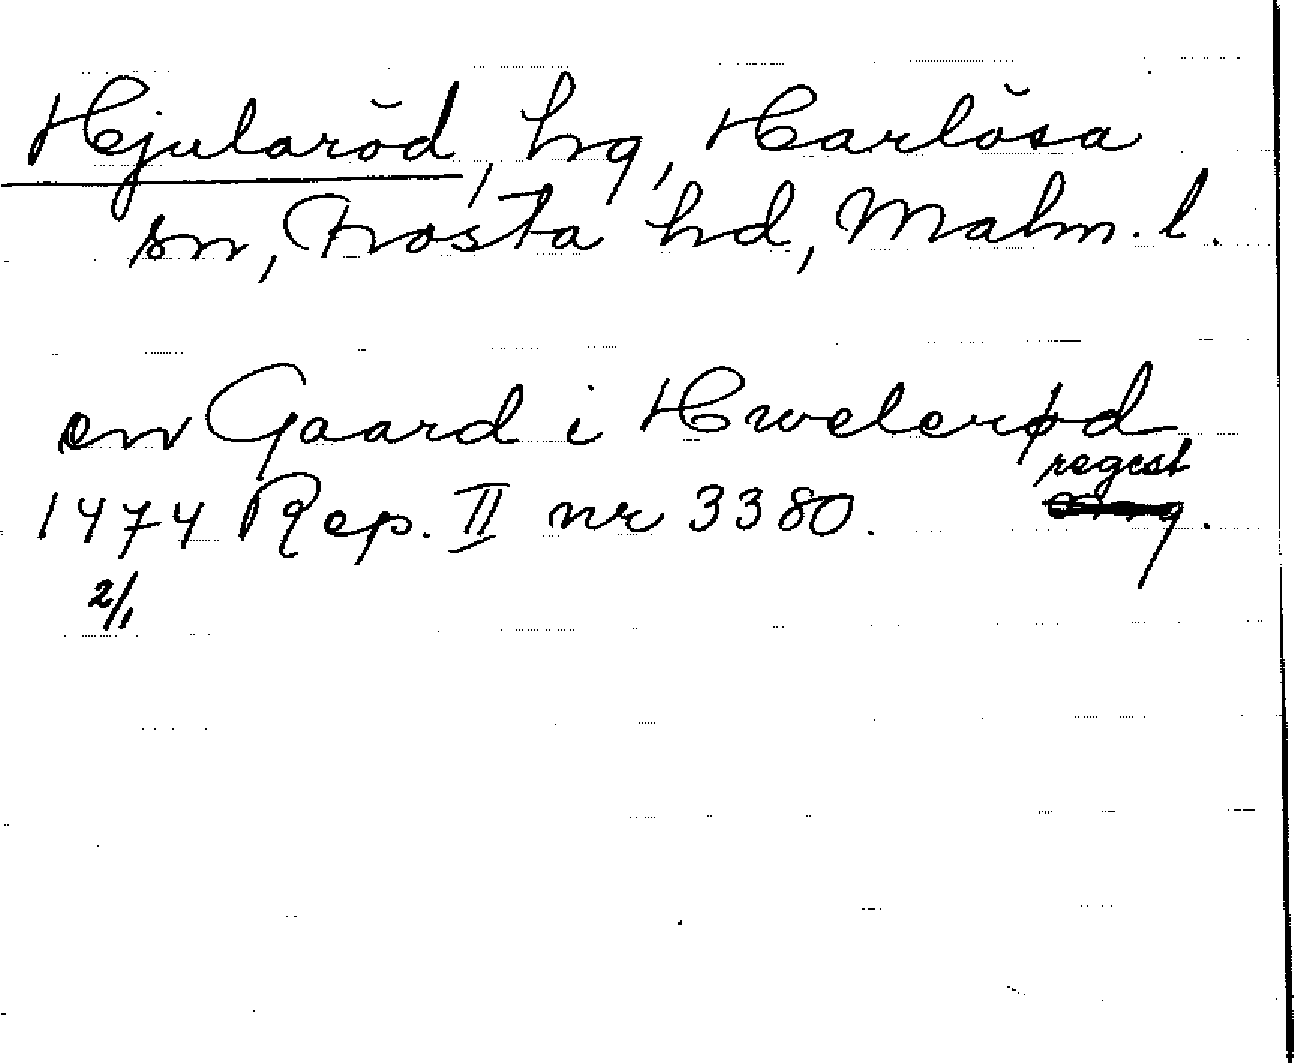 Hjularöd, hg, Harlösa
sn, Frosta hd, Malm. l.
en Gaard i Hwelerød
1474 Rep. II nr 3380. regest
2/1